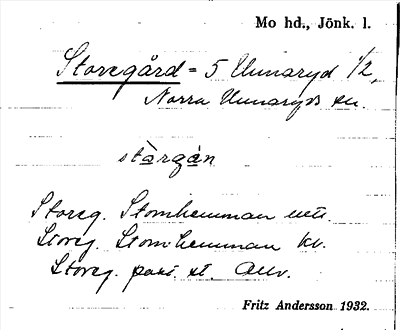 Mo hd., Jönk. l.
Storegård = 5 Unnaryd 1/2,
Norra Unnaryds sn.
stàrgán
Storeg. Stomhemman
Storeg. Stomhemman kv.
Storeg. st.
Fritz Andersson 1932.